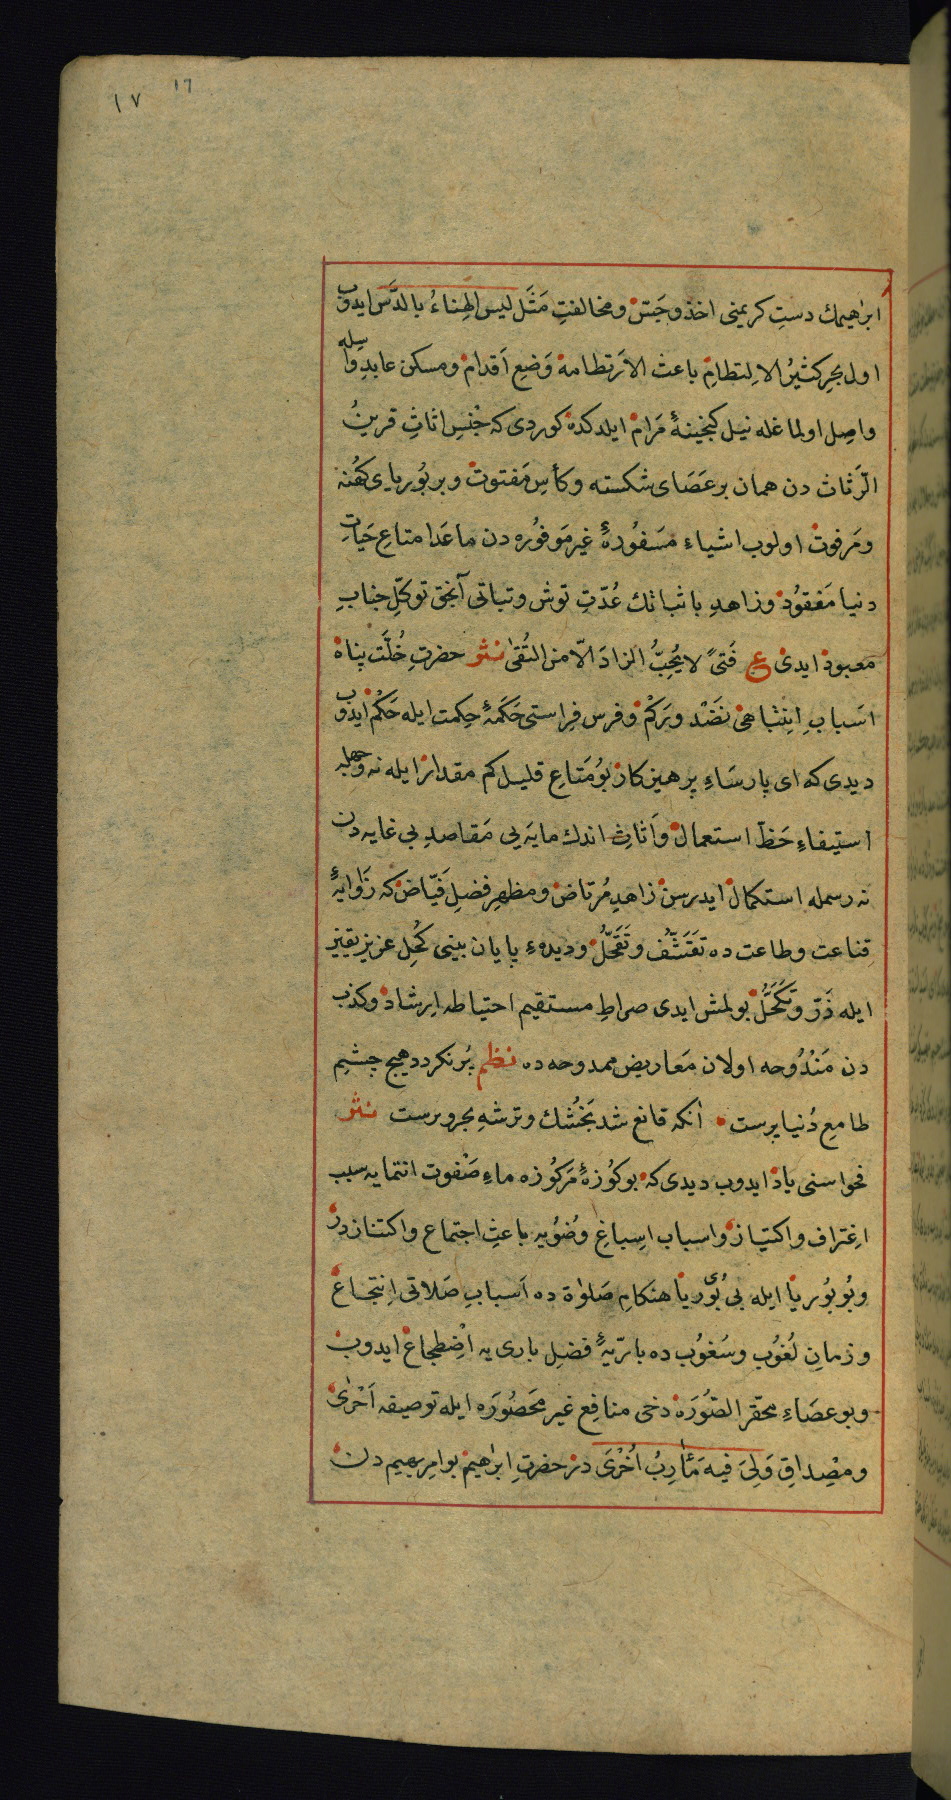 ١٧ ١٦
ابرٰهيمك دستِ كريمنى اخذ وجَسّ ومخالفتِ مَثَل ليس الهِناءُ بالدَّس ايدوب
اول بحرِ كثيرُ الالتطامِ باعث الارتطامه وَضعِ اَقدام ومسكن عابدِ واسيله
واصِل اولماغله نيل كنجينهٔ مَرام ايلدكده كوردى كه جنسِ اثاثِ قرينُ
الرَّثاث دن همان بر عَصَاى شكسته وكأسِ مَفتوت وبر بُورياى كهُنه
ومَرفوت اولوب اشياء مَسفُورهٔ غيرمَوفُوره دن ماعَدا متاعِ حَياتِ
دنيا مَفقوُد وزاهدِ باثباتك عُدّتِ توش وتباتى آنجق توكّلِ جنابِ
معبود ايدى ع فَتىً لا يُحِبُّ الزادَ الّا من التُقىٰ نثر حضرتِ خُلّت پناه
اسَبابِ اِنِتباهى نَضَد ورَكْم وفرس فِراستى حَكَمهٔ حِكمت ايله حَكْم ايدوب
ديدى كه اى پارسَاءِ پرهيزكار بو مَتاعِ قليل كم مقدار ايله نه وجهله
استيفاءِ حَظّ استعمال واَثاثِ اندك مايه يى مَقاصدِ بى غايه دن
نه رسمله استكمال ايدرسن زاهدِ مُرتاض ومظهرِ فضلِ فَيّاض كه زَاويهٔ
قِناعت وطاعت ده تقَشُّف وتَقَحُّل وديدهءِ پايان بينى كُحلِ عزيز يقين
ايله ذَرّ وتَكَحُّل بولمش ايدى صراطِ مستقيم احتياطه اِرشاد وكذب
دن مَنْدُوحه اولان مَعاريض ممدوحه ده نظم پُرنكردد هيچ چشيم
طامعِ دُنيا پرست انكه قانع شد بَخُشك وترشهِ بحروبرست نثر
فحواسنى ياد ايدوب ديدى كه بو كوُزهٔ مَركُوزه ماءِ صَنْفوت انتمايه سبب
اغِتراف واكتياز واسباب اسِباغِ وُضُويه باعثِ اجتماع واكتناز در
وبُو بُوريا ايله بى بُوى ريا هنكامِ صَلوٰة ده اَسبابِ صَلاتى اِنتجاع
وزمانِ لُغوُب وسُغوُب ده باترّيهٔ فضلِ بارى يه اضِطجاع ايدوب
وبو عصَاءِ محقّر الصُّورَه دخى منافِع غير محَصُورَه ايله توصيفه اَحْرٰى
ومصِداقِ وَلِىَ فيهَ مَأٰرِبُ اُخْرٰى در حضرتِ ابرٰهيم بو امرِ بهيم دن